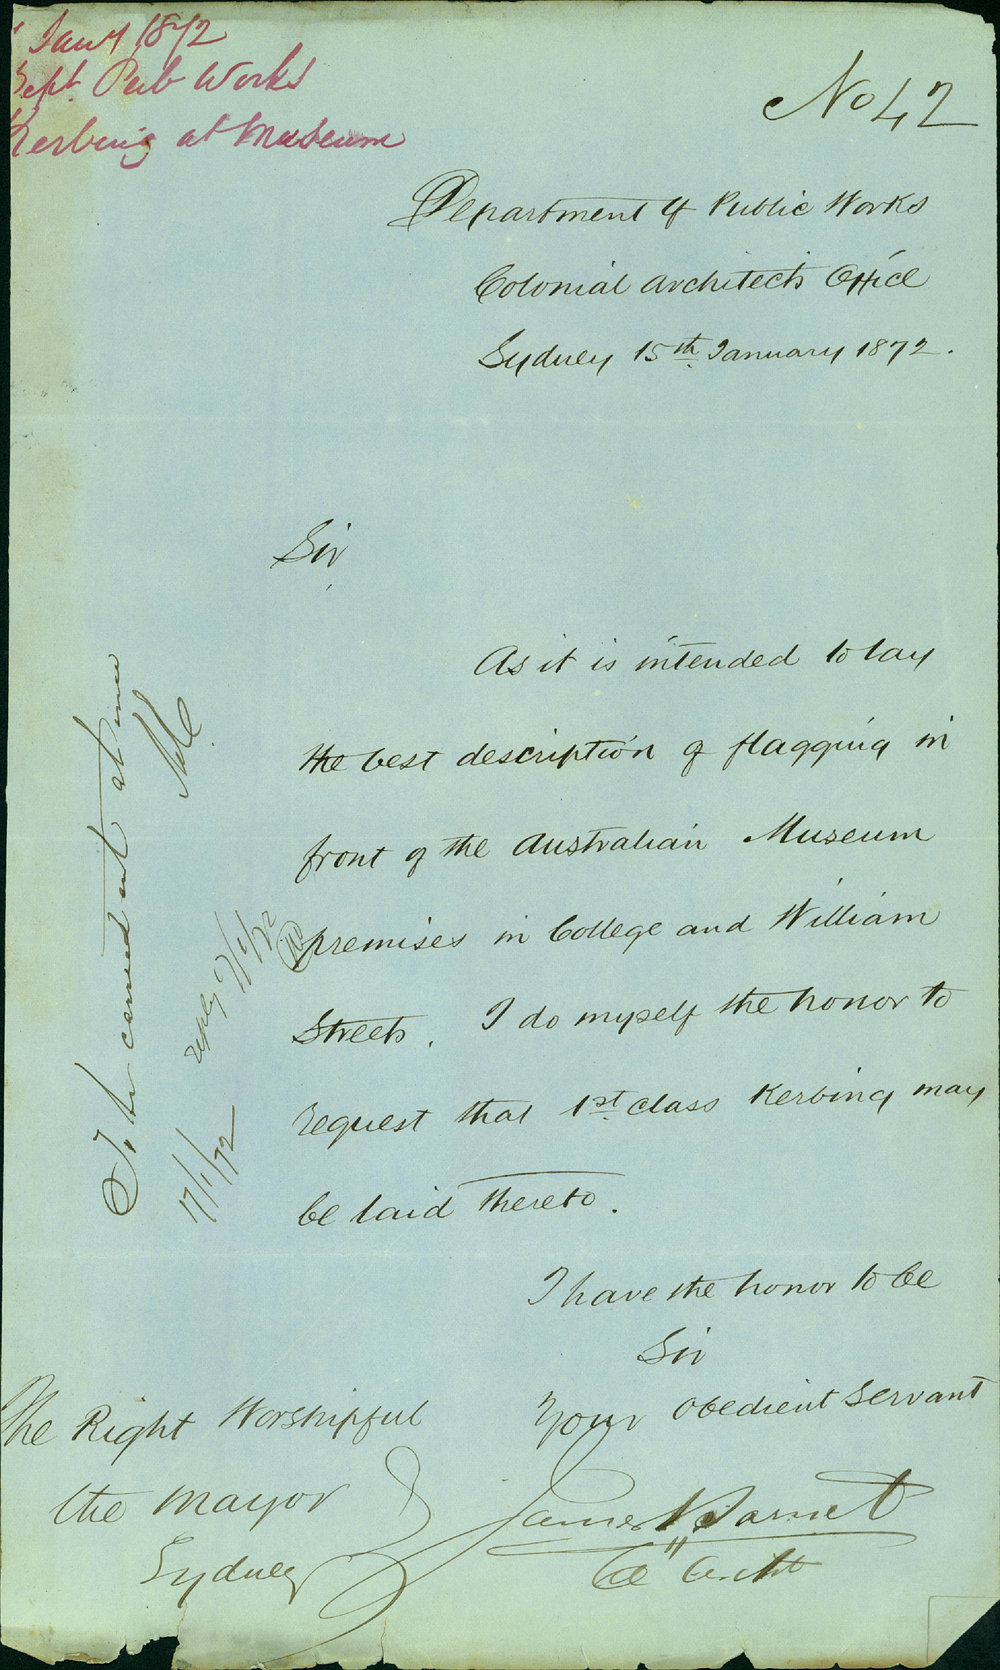 Jany 1872
Dept. Pub Works
Kerbing at Museum
No 42
Department of Public Works
Colonial Architects Office
Sydney 15th January 1872.
Sir
As it is intended to lay
the best description of flagging in
front of the Australian Museum
premises in College and William
Streets. I do myself the honor to
request that 1st class Kerbing may
be laid thereto.
I have the honor to be
Sir
Your Obedient Servant
James Barnet
Col Archt
The Right Worshipful
the Mayor
Sydney
To be carried out at once
17/1/72
reply 17/1/72